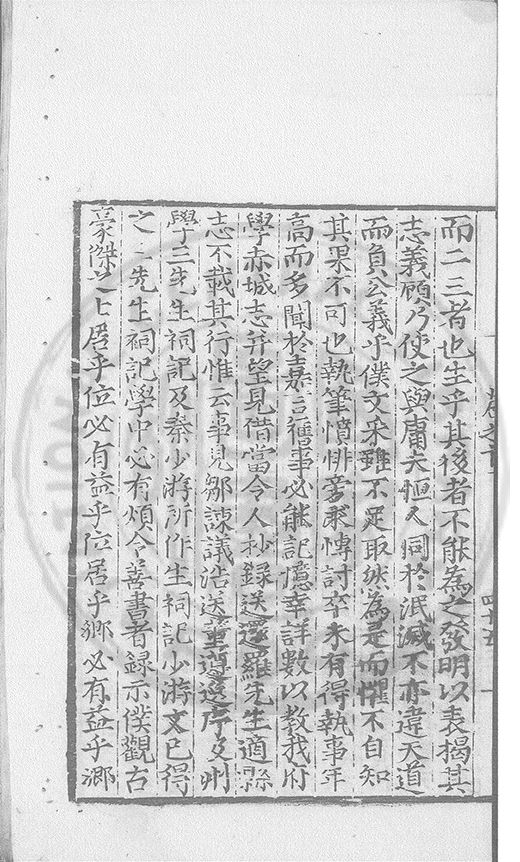 而二三者也生乎其後者不能為之發明以表揭其
志義顧乃使之與庸夫恒人同於泯滅不亦違天道
而負公義乎僕文采雖不足取然為是而懼不自知
其果不可也執筆憤悱旁求博討卒未有得執事年
高而多聞於嘉言舊事必能記憶幸詳數以教我府
學赤城志并望見借當令人抄錄送還羅先生適縣
志不載其行惟云事見鄒諫議浩送董遵逸序及州
學三先生祠記及秦少游所作生祠記少游文已得
之三先生祠記學中必有煩令善書者録示僕觀古
豪傑之士居乎位必有益乎位居乎鄉必有益乎鄉
四十五